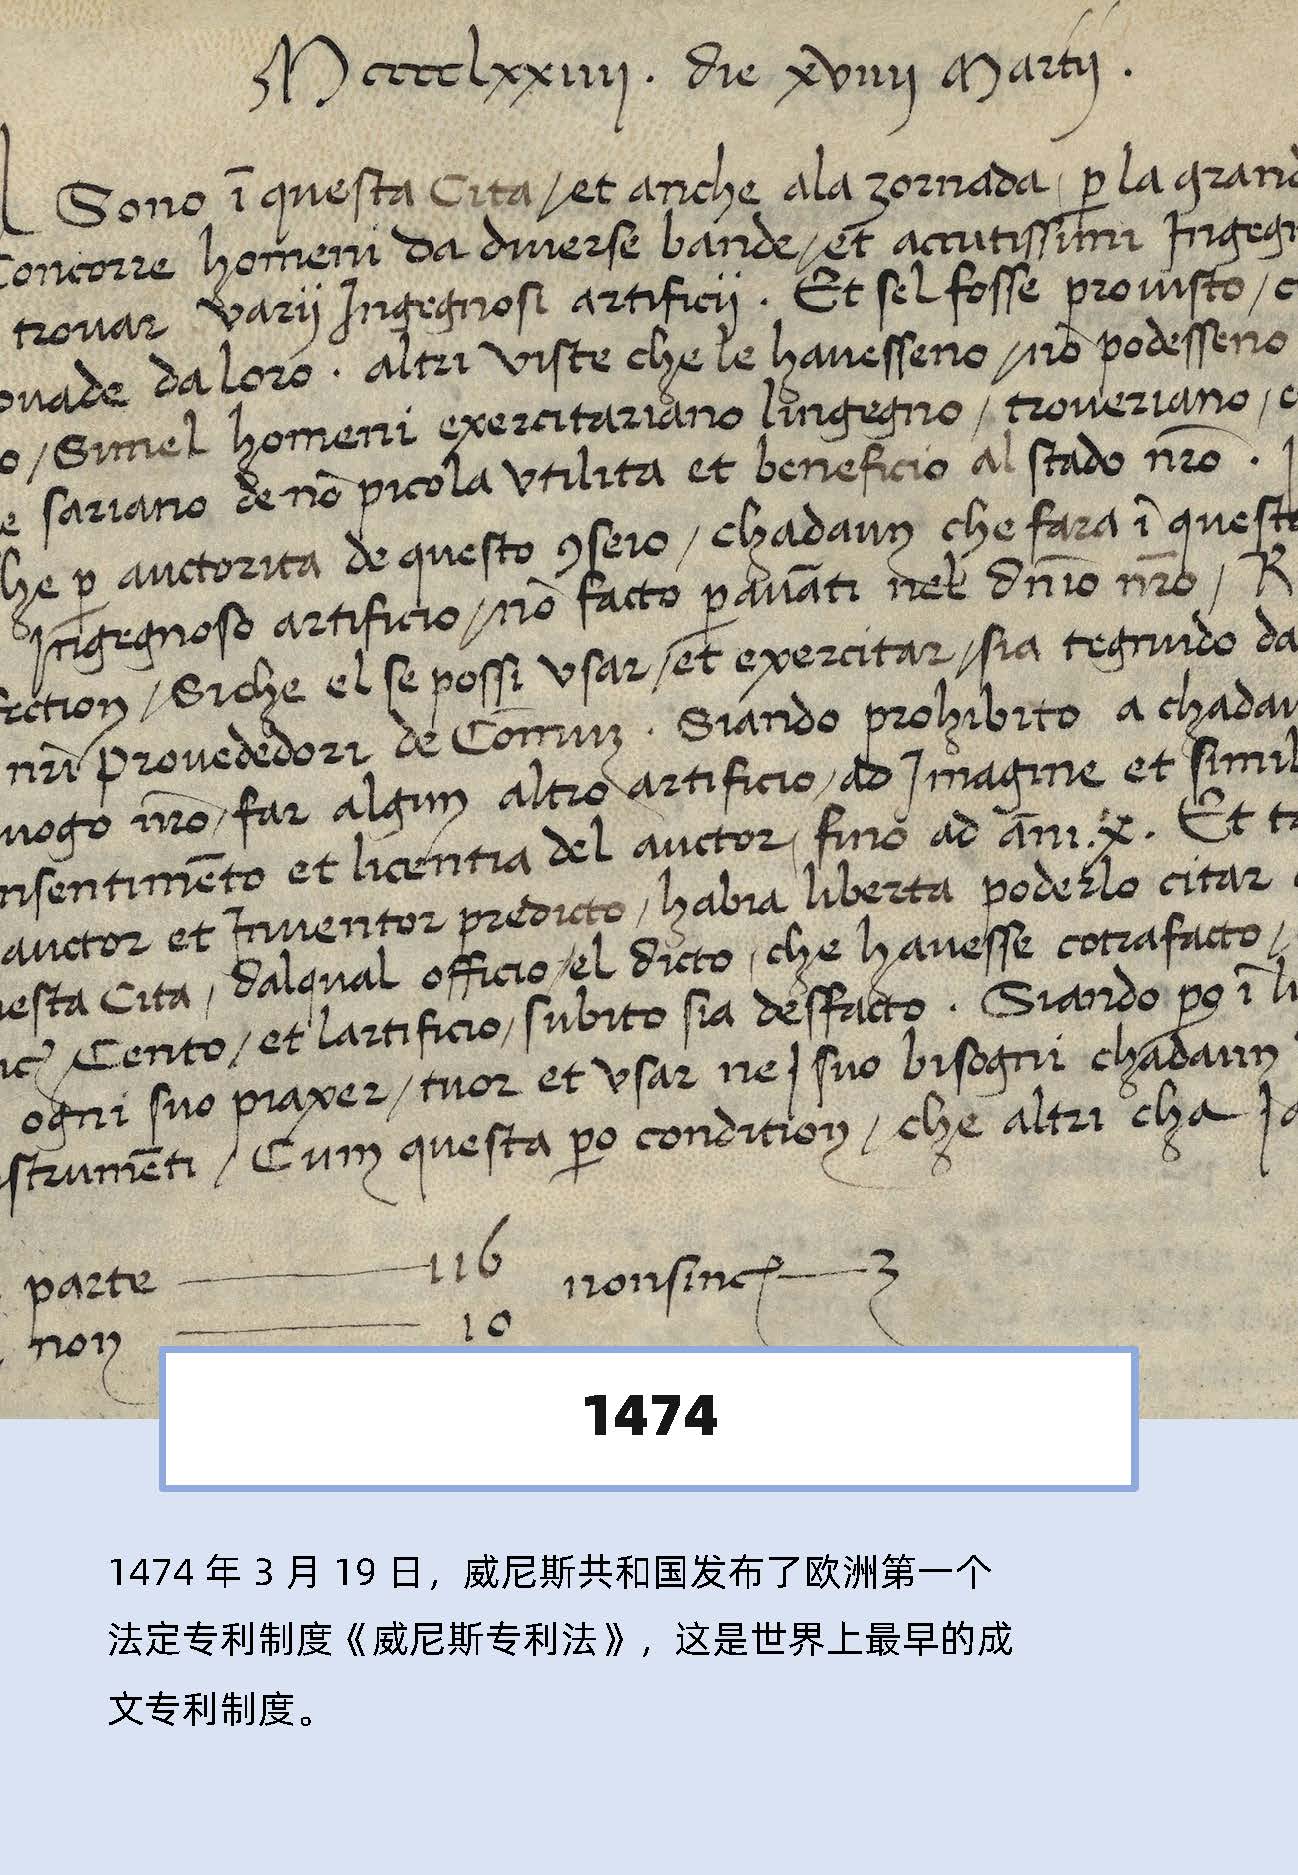 Mccccლxxiiij. die xviiij Martij.
Sono ī questa Cita / et anche ala zornada, p̱ la grand
Concorre homeni da diuerse bande / et accutissimi Ingegn
trouar varij Ingegnosi artificij. Et sel fosse prouisto / c
ouade da loro. altri viste che le hauesseno / nō podesseno
o / Simel homeni exercitariano lingegno / troueriano / c
e sariano de nō picola vtilita et beneficio al stado nr̄o.
he p̱ auctorita de questo 9seio / chadaun che fara ī questa
Ingegnoso artificio / nō facto p̱auāti nel dn̄io nr̄o / R
fection / Siche el se possi vsar / et exercitar / sia tegnudo da
nr̄i Prouededori de Comun. Siando prohibito a chadau
uogo nr̄o / far algun altro artificio / ad Imagine et simil
nsentimēto et licentia del auctor / fino ad ān̄i. x. Et ta
auctor et Inuentor predicto / habia liberta poderlo citar
uesta Cita / dalqual officio / el dicto / che hauesse cotrafacto /
Cento / et lartificio / subito sia desfacto. Siando po ī li
ogni suo piaxer / tuor et vsar ne I suo bisogni chadaun
strumēti / Cum questa po condition / che altri cha
parte 116 nonsinc 3
non 10
1474
1474 年 3 月 19 日，威尼斯共和国发布了欧洲第一个
法定专利制度《威尼斯专利法》，这是世界上最早的成
文专利制度。